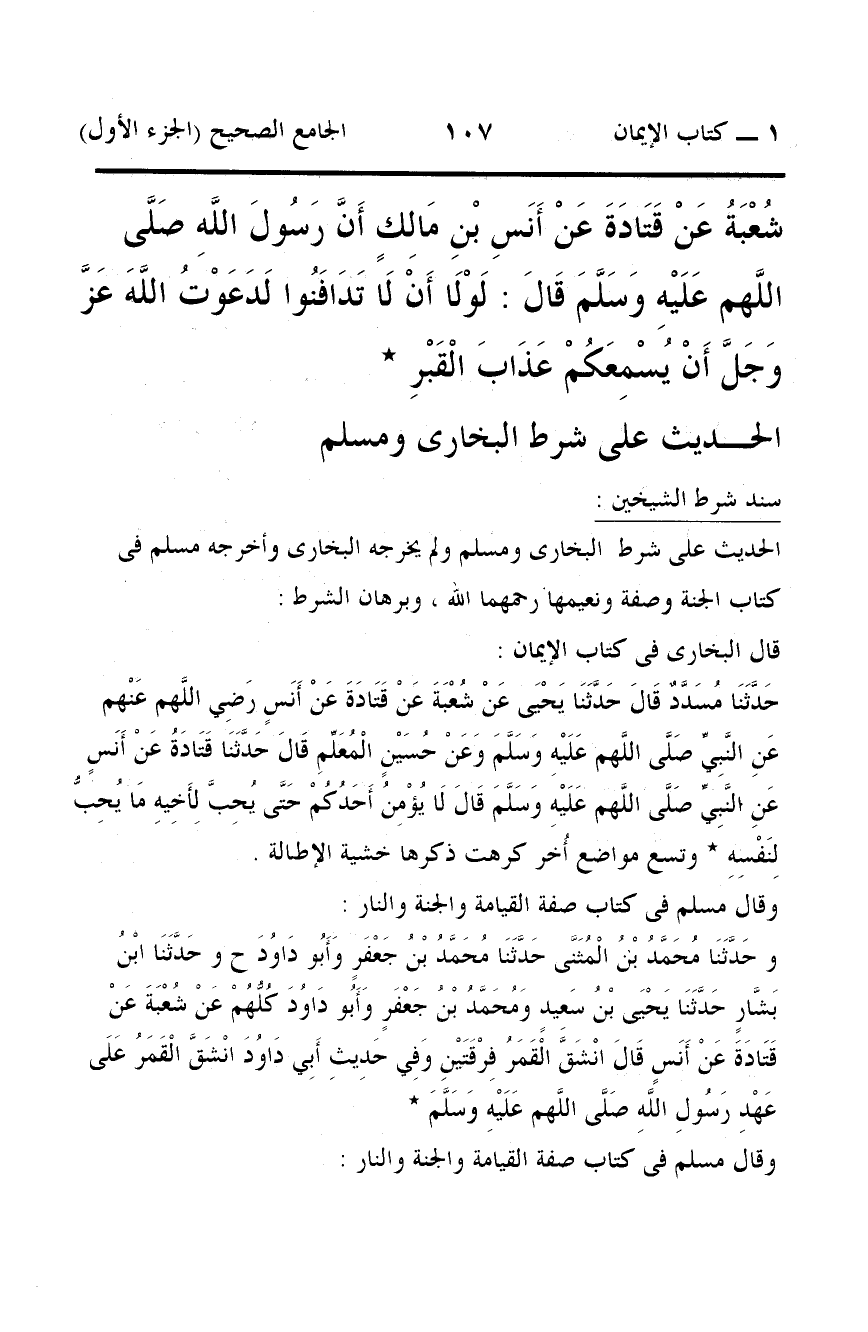 ١ ـ كتاب الإيمان ١٠٧ الجامع الصحيح (الجزء الأول)
شُعْبَةُ عَنْ قَتَادَةَ عَنْ أَنَسِ بْنِ مَالِكٍ أَنَّ رَسُولَ اللَّهِ صَلَّى
اللَّهم عَلَيْهِ وَسَلَّمَ قَالَ : لَوْلَا أَنْ لَا تَدَافَنُوا لَدَعَوْتُ اللَّهَ عَزَّ
وَجَلَّ أَنْ يُسْمِعَكُمْ عَذَابَ الْقَبْرِ *
الحـــديث على شرط البخارى ومسلم
سند شرط الشيخين :
الحديث على شرط البخارى ومسلم ولم يخرجه البخارى وأخرجه مسلم فى
كتاب الجنة وصفة ونعيمها رحمهما الله ، وبرهان الشرط :
قال البخارى فى كتاب الإيمان :
حَدَّثَنَا مُسَدَّدٌ قَالَ حَدَّثَنَا يَحْيَى عَنْ شُعْبَةَ عَنْ قَتَادَةَ عَنْ أَنَسٍ رَضِي اللَّهم عَنْهم
عَنِ النَّبِيِّ صَلَّى اللهم عَلَيْهِ وَسَلَّمَ وَعَنْ حُسَيْنٍ الْمُعَلِّمِ قَالَ حَدَّثَنَا قَتَادَةُ عَنْ أَنَسٍ
عَنِ النَّبِيِّ صَلَّى اللهم عَلَيْهِ وَسَلَّمَ قَالَ لَا يُؤْمِنُ أَحَدُكُمْ حَتَّى يُحِبَّ لِأَخِيهِ مَا يُحِبُّ
لِنَفْسِهِ * وتسع مواضع أُخر كرهت ذكرها خشية الإطالة .
وقال مسلم فى كتاب صفة القيامة والجنة والنار :
و حَدَّثَنَا مُحَمَّدُ بْنُ الْمُثَنَّى حَدَّثَنَا مُحَمَّدُ بْنُ جَعْفَرٍ وَأَبُو دَاوُدَ ح و حَدَّثَنَا ابْنُ
بَشَّارٍ حَدَّثَنَا يَحْيَى بْنُ سَعِيدٍ وَمُحَمَّدُ بْنُ جَعْفَرٍ وَأَبُو دَاوُدَ كُلُّهُمْ عَنْ شُعْبَةَ عَنْ
قَتَادَةَ عَنْ أَنَسٍ قَالَ انْشَقَّ الْقَمَرُ فِرْقَتَيْنِ وَفِي حَدِيثِ أَبِي دَاوُدَ انْشَقَّ الْقَمَرُ عَلَى
عَهْدِ رَسُولِ اللَّهِ صَلَّى اللَّهم عَلَيْهِ وَسَلَّمَ *
وقال مسلم فى كتاب صفة القيامة والجنة والنار :